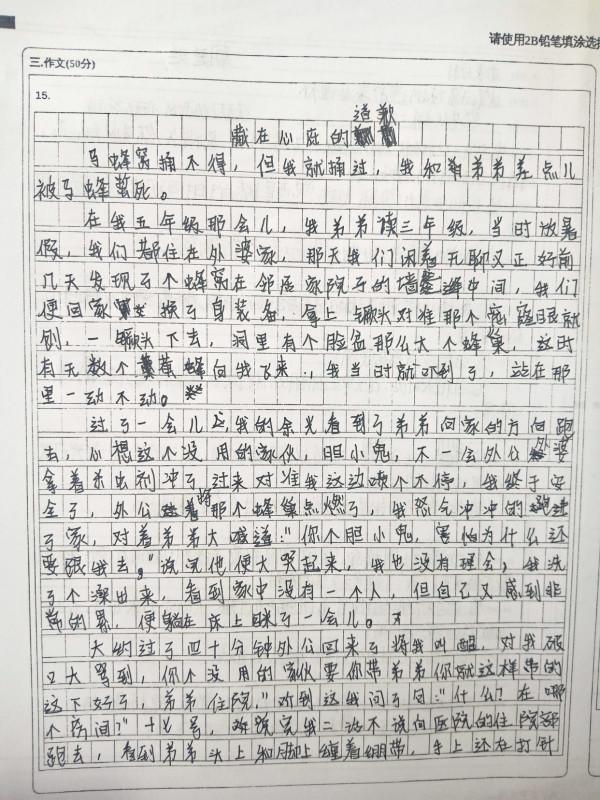 请使用2B铅笔填涂选择
三.作文(50分)
15.
道歉
藏在心底的
马蜂窝捅不得，但我就捅过，我和弟弟差点儿
被马蜂蜇死。
在我五年级那会儿，我弟弟读三年级，当时放暑
假，我们都住在外婆家，那天我们闲着无聊又正好前
几天发现了个蜂窝在邻居家院子的墙缝中间，我们
便回家换了身装备，拿上镢头对准那个窟窿眼就
刨，一镢头下去，洞里有个脸盆那么大个蜂巢，这时
有无数个黄蜂向我飞来，我当时就吓到了，站在那
里一动不动。
过了一会儿我的余光看到了弟弟向家的方向跑
去，心想这个没用的家伙，胆小鬼，不一会外公外婆
拿着杀虫剂冲了过来对准我这边喷个不停，我终于安
全了，外公将那个蜂巢点燃了，我怒气冲冲的跑进
了家，对着弟弟大喊道："你个胆小鬼，害怕为什么还
要跟我去。"说完他便大哭起来，我也没有理会，我洗
了个澡出来，看到家中没有一个人，但自己又感到非
常的累，便躺在床上眯了一会儿。
大约过了四十分钟外公回来了将我叫醒，对我破
口大骂到，你个没用的家伙要你带弟弟你就这样带的
这下好了，弟弟住院，"听到这我问了句："什么？在哪
个房间？"十七号，听说完我二话不说向医院的住院部
跑去，看到弟弟头上和脚上缠着绷带，手上还在打针